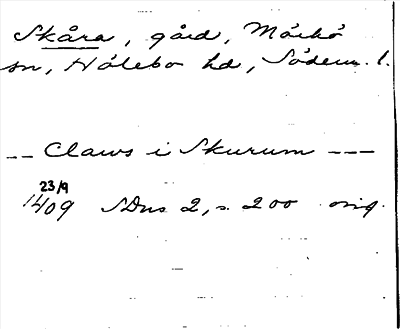 Skåra, gård, Mörkö
sn, Hölebo hd, Söderm. l.
-- Claws i Skurum ---
23/9
1409 SDns 2, s. 200 orig.